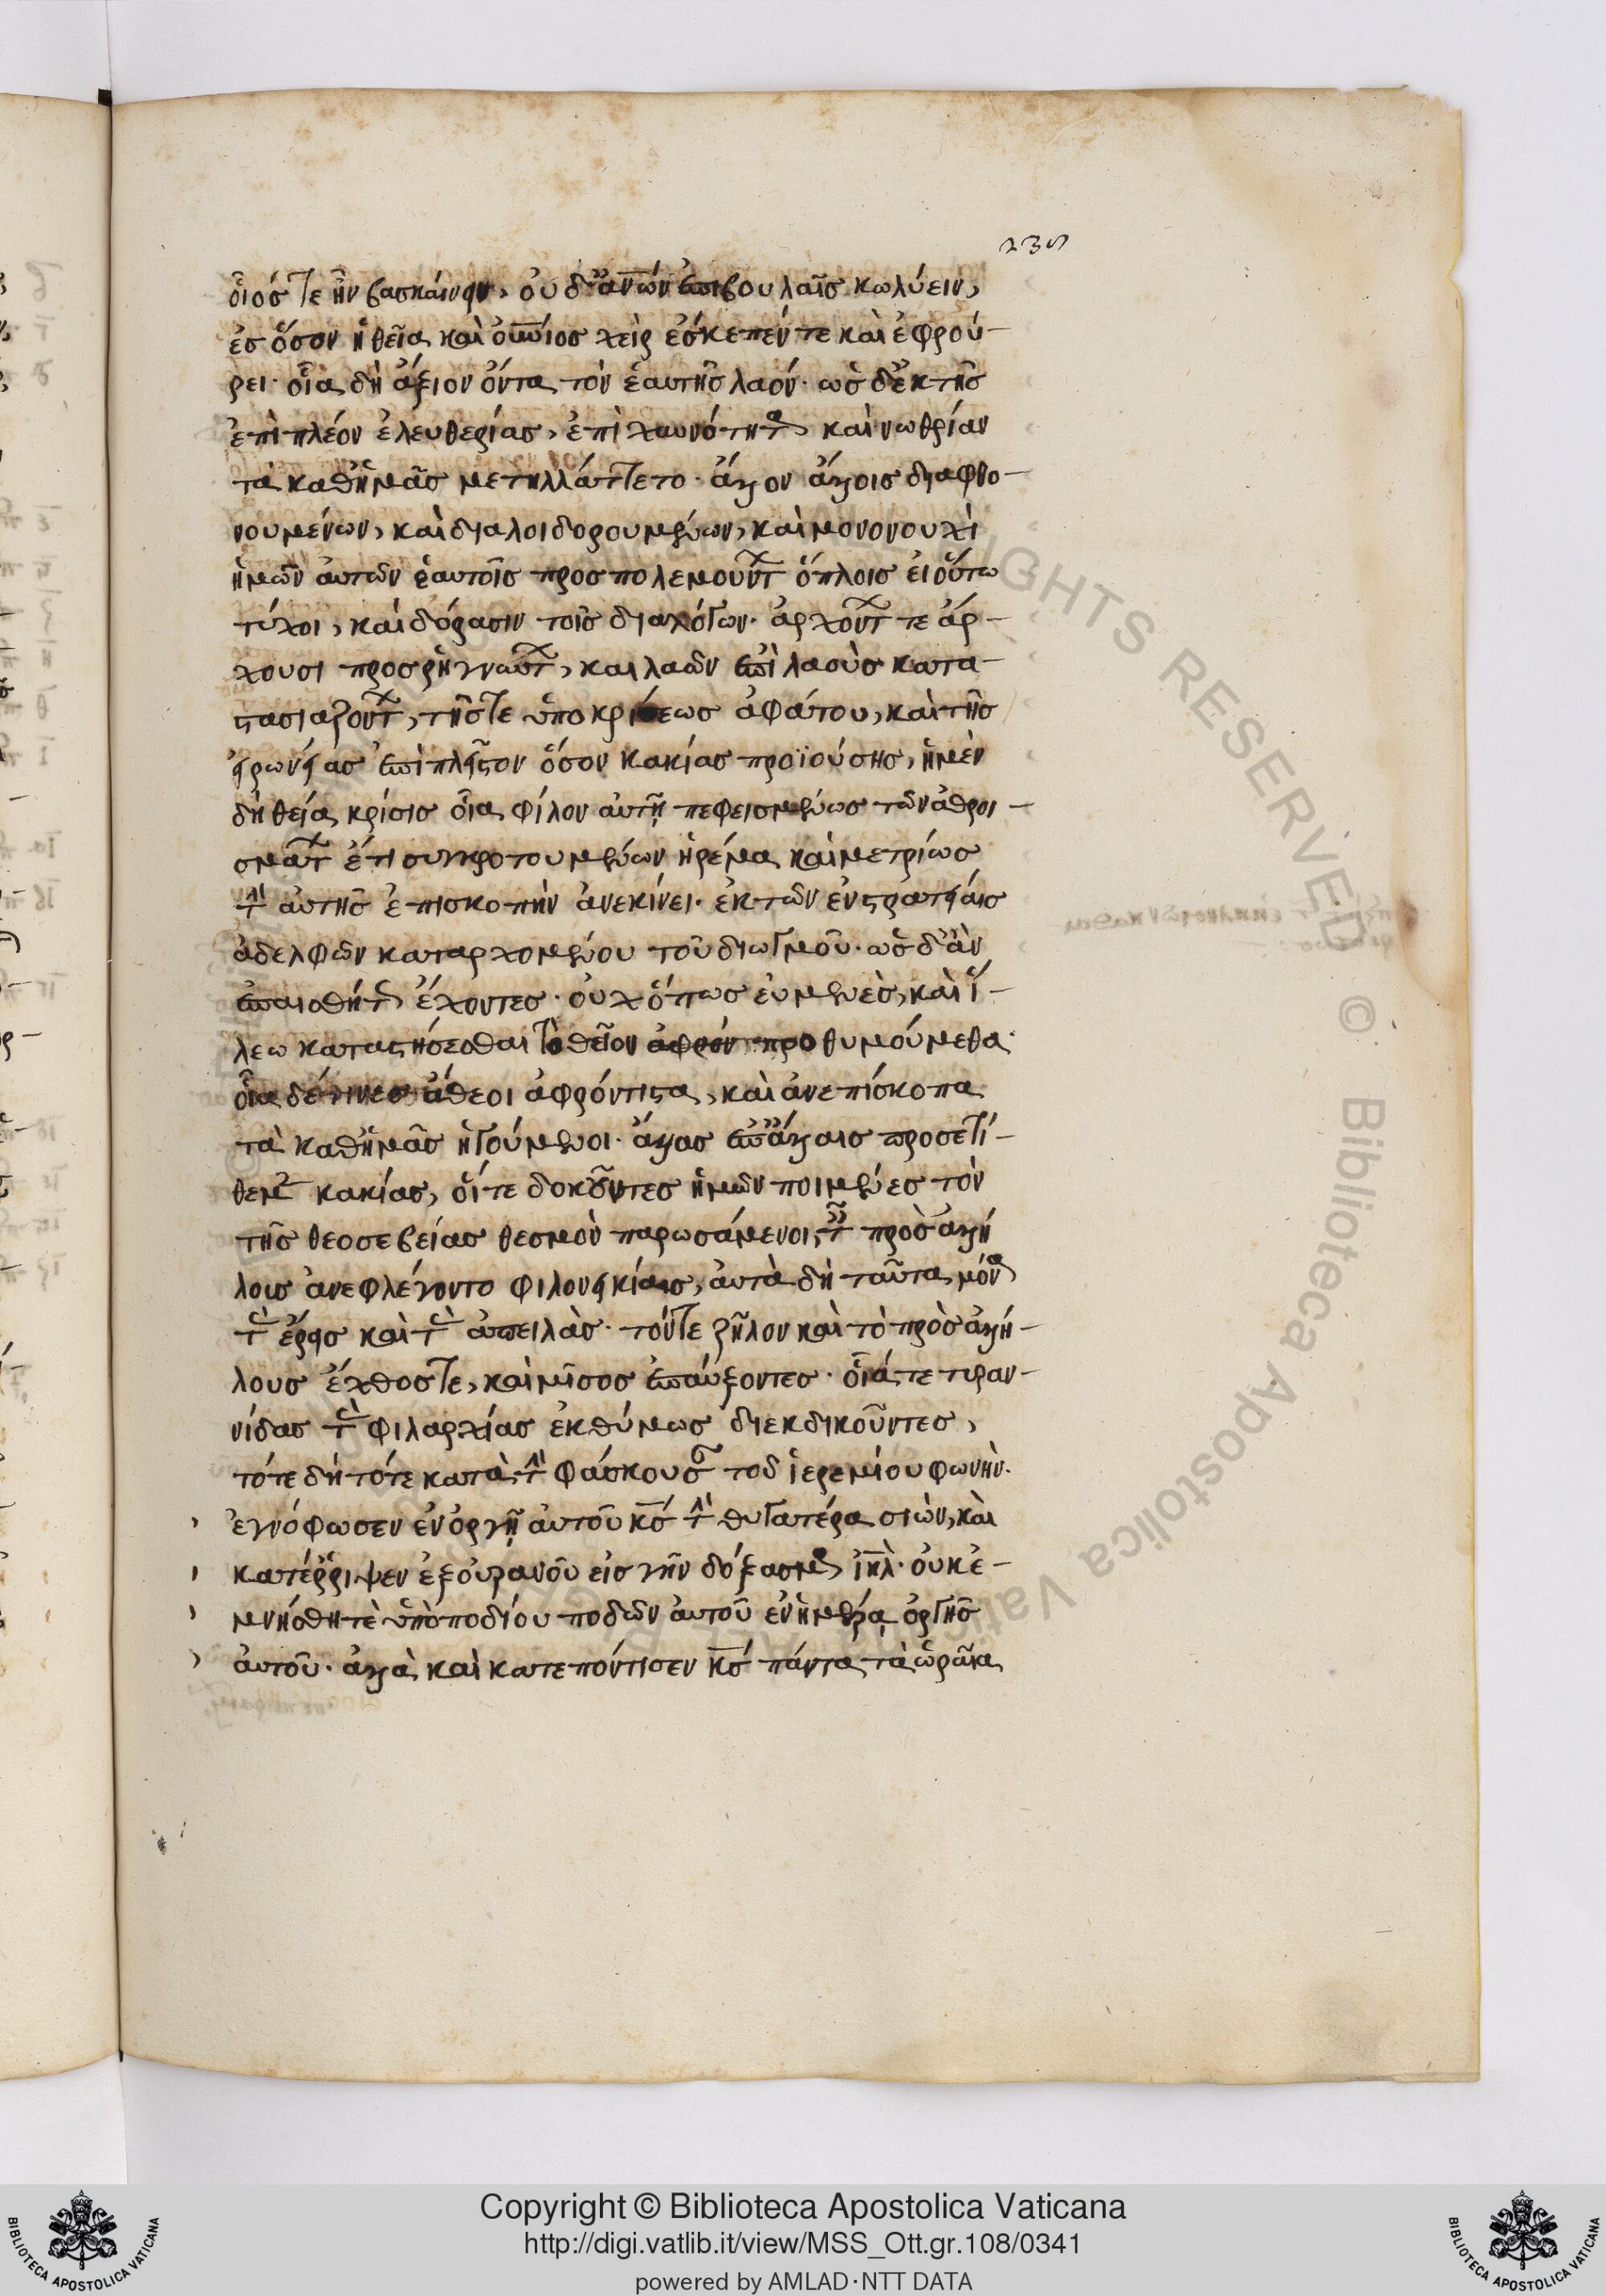 235
οἷός τε ἦν βασκαίνειν, οὐδ' ἀν̅ω̅ν ἐπιβουλαῖς κωλύειν,
ἐς ὅσον ἡ θεῖα καὶ οὐ̅νιος χεὶρ ἔσκεπέν τε καὶ ἐφρού-
ρει· οἷα δὴ ἄξιον ὄντα τὸν ἑαυτῆς λαόν· ὡς δ' ἐκ τῆς
ἐπὶ πλέον ἐλευθερίας, ἐπὶ χαυνότητα καὶ νωθρίαν
τὰ καθ' ἡμᾶς μετηλλάττετο· ἄλλον ἄλλοις διαφθο-
νουμένων, καὶ διαλοιδορουμένων, καὶ μονονουχὶ
ἡμῶν αὐτῶν ἑαυτοῖς προσπολεμούντων ὅπλοις εἰ οὕτω
τύχοι, καὶ δόρασιν τοῖς διὰ λόγων· ἀρχόντων τε ἄρ-
χουσι προσρηγνώντων, καὶ λαῶν ἐπὶ λαοὺς κατα-
στασιαζόντων, τῆς τε ὑποκρίσεως ἀφάτου, καὶ τῆς
εἰρωνείας ἐπὶ πλεῖστον ὅσον κακίας προϊούσης, ἡ μὲν
δὴ θεία κρίσις οἷα φίλον αὐτῇ πεφεισμένως τῶν ἀθροι-
σμάτων ἔτι συγκροτουμένων ἠρέμα καὶ μετρίως
τὴν αὐτῆς ἐπισκοπὴν ἀνεκίνει· ἐκ τῶν ἐν στρατείαις
ἀδελφῶν καταρχομένου τοῦ διωγμοῦ· ὡς δ' ἂν
ἀνεπαισθήτως ἔχοντες· οὐχ ὅπως εὐμενὲς, καὶ ἵ-
λεω καταστήσεσθαι τὸ θεῖον προθυμούμεθα·
οἷα δέ τινες ἄθεοι ἀφρόντιστα, καὶ ἀνεπίσκοπα
τὰ καθ' ἡμᾶς ἡγούμενοι· ἄλλας ἐπ' ἄλλαις προσετί-
θεμεν κακίας, οἵ τε δοκοῦντες ἡμῶν ποιμένες τὸν
τῆς θεοσεβείας θεσμὸν παρωσάμενοι, ταῖς πρὸς ἀλλή
λοις ἀνεφλέγοντο φιλονεικίαις, αὐτὰ δὴ ταῦτα μόνα
τὰς ἔρεις καὶ τὰς ἀπειλὰς· τόν τε ζῆλον καὶ τὸ πρὸς ἀλλή-
λους ἔχθος τε, καὶ μῖσος ἐπαύξοντες· οἷά τε τυραν-
νίδας τὰς φιλαρχίας ἐκθύμως διεκδικοῦντες,
τότε δὴ τότε κατὰ τὴν φάσκουσαν τοῦ ἱερεμίου φωνὴν·
ἐγνόφωσεν ἐν ὀργῇ αὐτοῦ κ̅ς τὴν θυγατέρα σιὼν, καὶ
κατέρριψεν ἐξ οὐρανοῦ εἰς γῆν δόξασμα ι̅η̅λ· οὐκ ἐ-
μνήσθη τὲ ὑποποδίου ποδῶν αὐτοῦ ἐν ἡμέρᾳ ὀργῆς
αὐτοῦ· ἀλλὰ καὶ κατεπόντισεν κ̅ς πάντα τὰ ὡραῖα
Copyright © Biblioteca Apostolica Vaticana
http://digi.vatlib.it/view/MSS_Ott.gr.108/0341
powered by AMLAD·NTT DATA